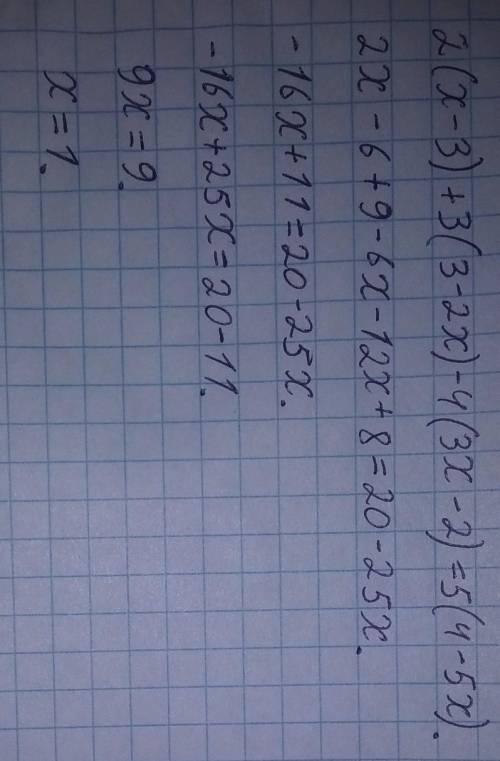 2(x-3)+3(3-2x)-4(3x-2)=5(4-5x).
2x-6+9-6x-12x+8=20-25x.
-16x+11=20-25x.
-16x+25x=20-11.
9x=9.
x=1.